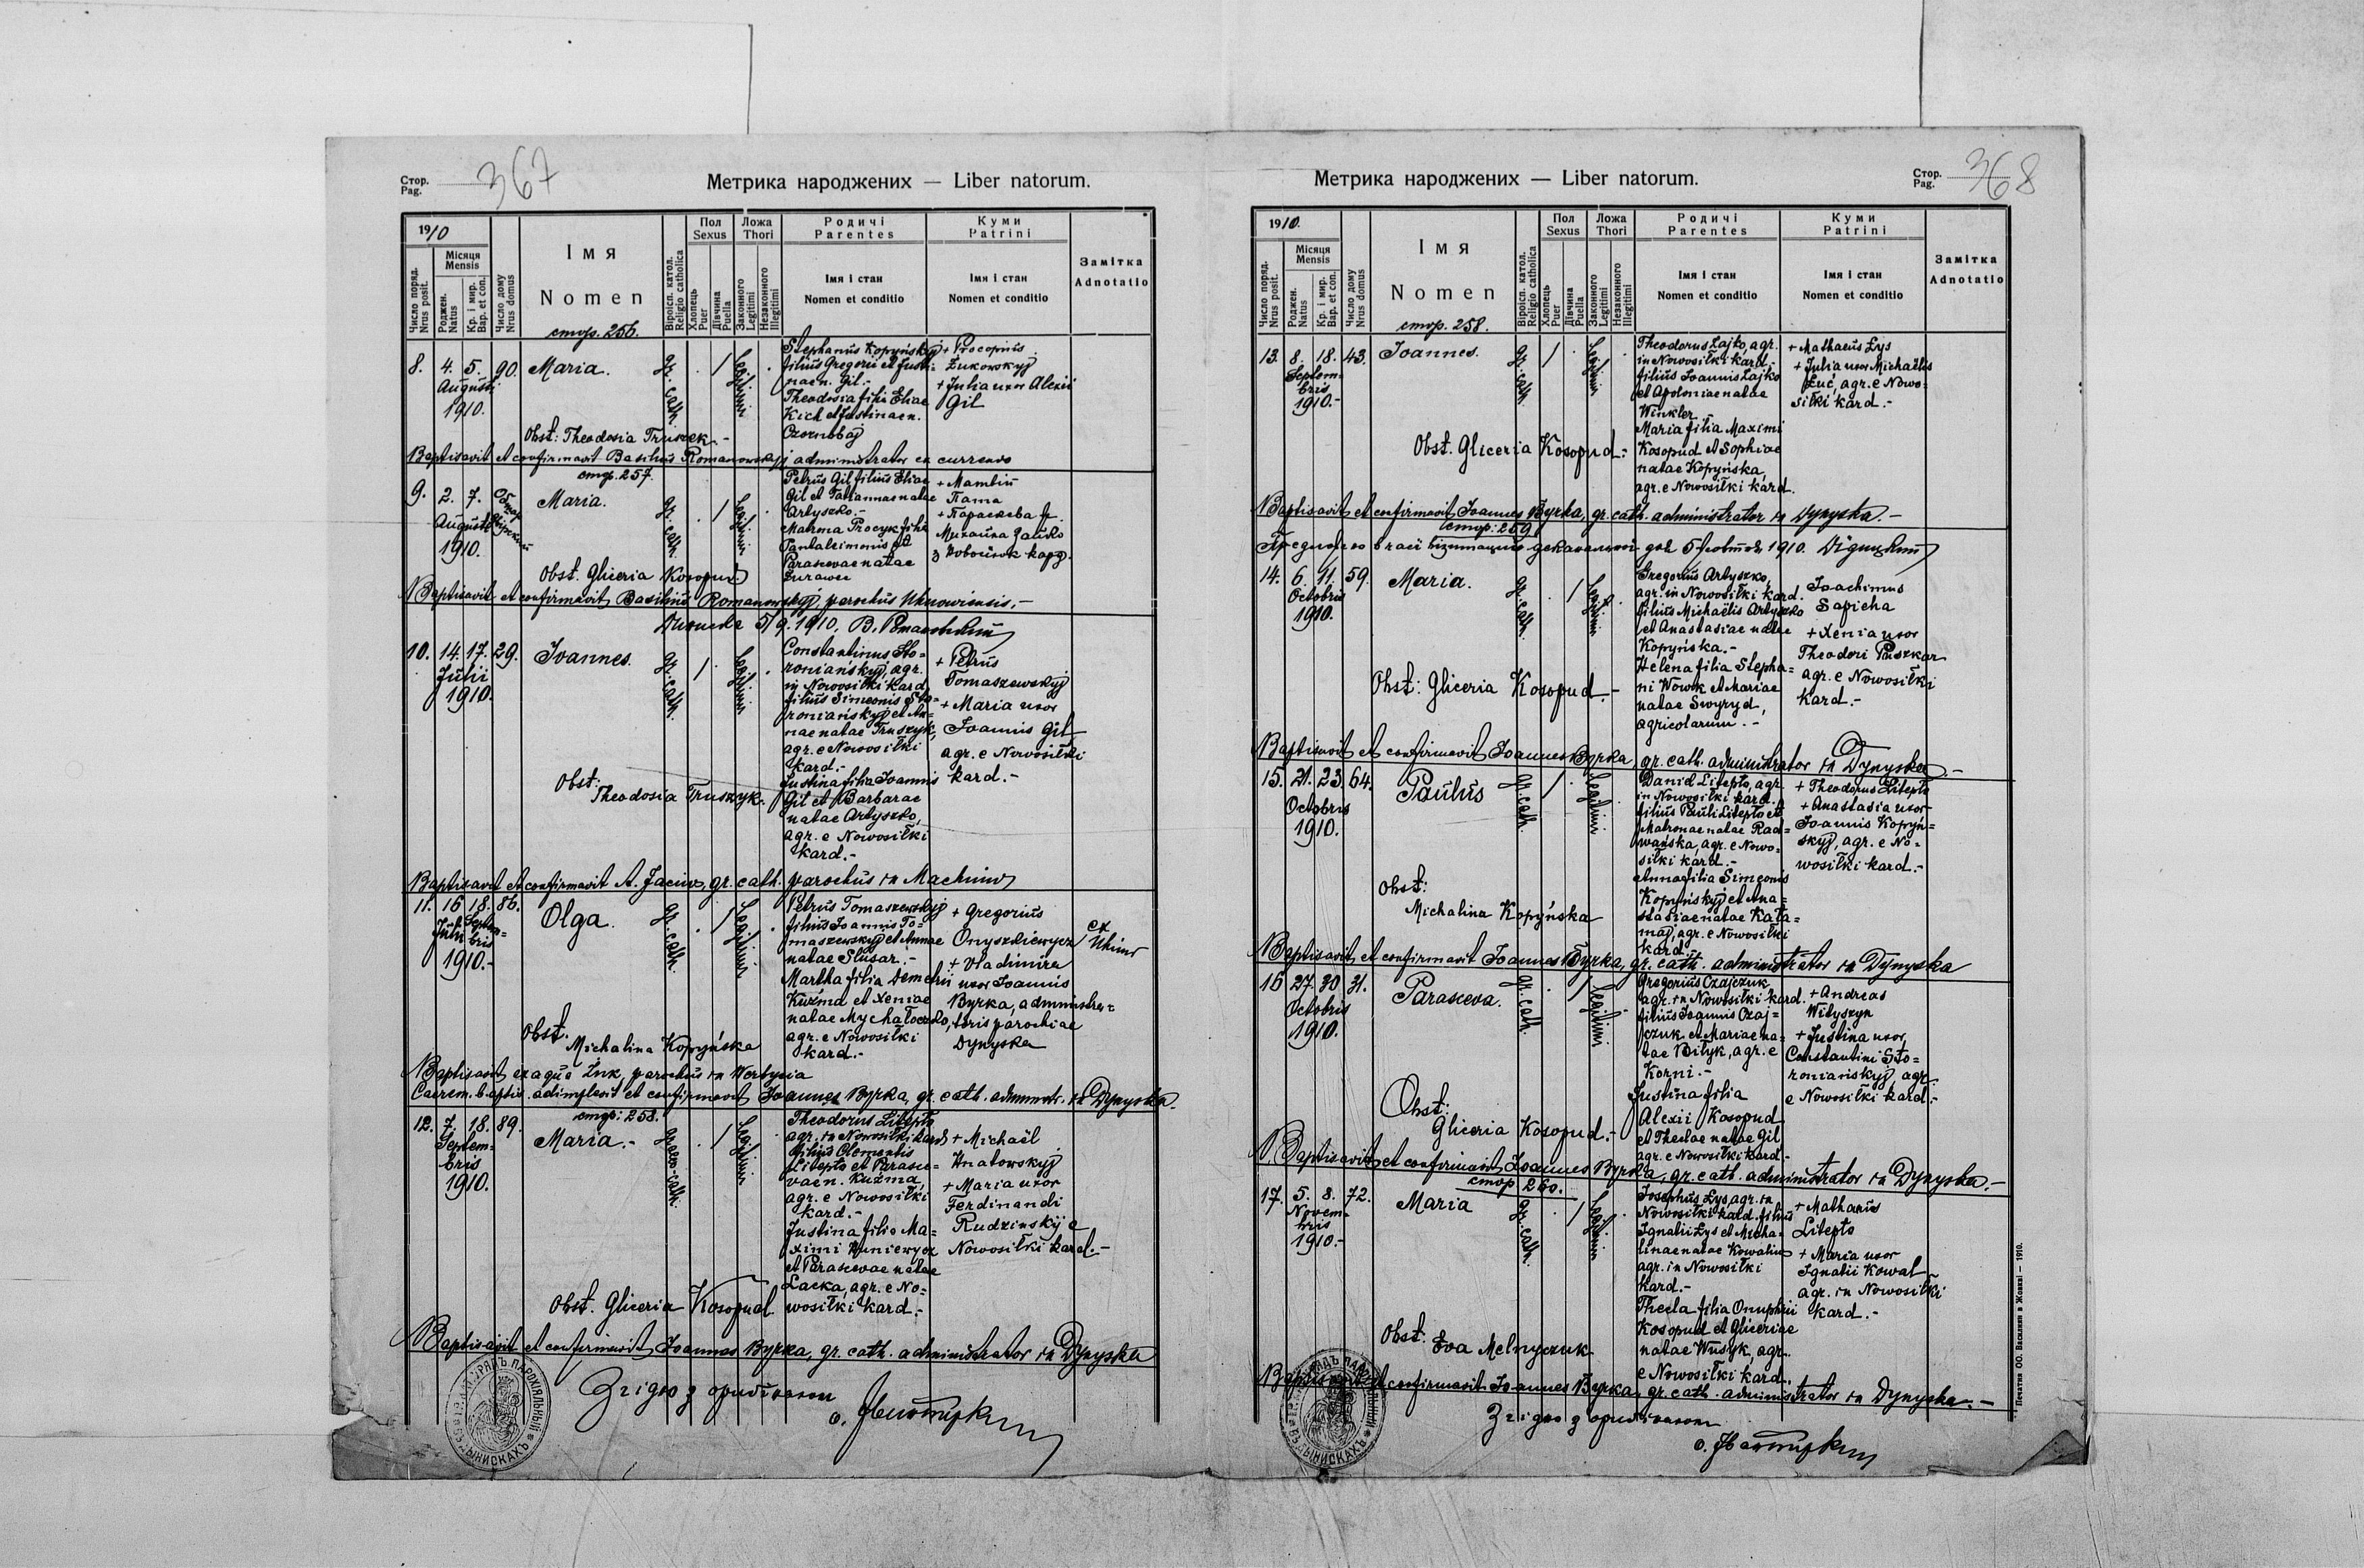 Стор.
Pag.
367
Метрика народжених — Liber natorum.
1910
Число поряд.
Nrus posit.
Місяця
Mensis
Роджен.
Natus
Кр. і мир.
Bap. et con.
Число дому
Nrus domus
Імя
Nomen
стор. 256.
Віроісп. катол.
Religio catholica
Пол
Sexus
Хлопець
Puer
Дївчина
Puella
Ложа
Thori
Законного
Legitimi
Незаконного
Illegitimi
Родичі
Parentes
Імя і стан
Nomen et conditio
Куми
Patrini
Імя і стан
Nomen et conditio
Замітка
Adnotatio
8. 4. 5. 90. Maria.
Augusti
1910.
gr. cath.
Legitimi
Stephanus Kopyńskyj
filius Gregorii et Justi-
nae n. Gil.-
Theodosia filia Eliae
Kich et Justinae n.
Czornobaj
+ Procopius
Żukowskyj
+ Julia uxor Alexii
Gil
Obst: Theodosia Truszek.-
Baptisavit et confirmavit Basilius Romanowskyj administrator ex currendo
стор. 257.
9. 2. 7.
Maria.
Augusti
1910.
gr. cath.
Legitimi
Petrus Gil filius Eliae
Gil et Tatiannae natae
Artyszko.-
Matrona Procyk filia
Pantaleimonis et
Parascevae natae
Żurawel
Obst. Gliceria Kosopud.
Baptisavit et confirmavit Basilius Romanowskyj, parochus Uhnoviensis.-
5/9. 1910. В. Романовський
10. 14. 17. 29. Joannes.
Julii
1910.
gr. cath.
Legitimi
Constantinus Sto-
roniańskyj, agr.
in Nowosiłki kard.
filius Simeonis Sto-
roniańskyj et An-
nae natae Truszyk,
agr. e Nowosiłki
kard.-
Justina filia Joannis
Gil et Barbarae
natae Artyszko,
agr. e Nowosiłki
kard.-
+ Petrus
Tomaszewskyj
+ Maria uxor
Joannis Gil
agr. e Nowosiłki
kard.-
Obst:
Theodosia Truszyk.
Baptisavit et confirmavit A. Jaciw, gr. cath. parochus in Machniw
11. 16 18. 86. Olga.
Julii Septem-
bris
1910.-
gr. cath.
Legitimi
Petrus Tomaszewskyj
filius Joannis To-
maszewskyj et Annae
natae Slusar.-
Martha filia Demetrii
Kuźma et Xeniae
natae Mychałoczko,
agr. e Nowosiłki
kard.-
+ Gregorius
Onyszkiewycz
+ Vladimira
uxor Joannis
Byrka, administra-
toris parochiae
Dynyska
ex
Uhniw
Obst.
Michalina Kopyńska
Baptisavit ex aqua Luk, parochus in Werbycia
Caerem. baptis. adimplevit et confirmavit Joannes Byrka, gr. cath. administr. in Dynyska.
стор: 258.
12. 7. 18. 89. Maria.-
Septem-
bris
1910.
graeco-cath.
Legitimi
Theodorus Litepło
agr. in Nowosiłki kard
filius Clementis
Litepło et Parasce-
vae n. Kuźma,
agr. e Nowosiłki
kard.-
Justina filia Ma-
ximi Huniewycz
et Parascevae natae
Lacka, agr. e No-
wosiłki kard.-
+ Michaël
Hnatowskyj
+ Maria uxor
Ferdinandi
Rudzinskyj e
Nowosiłki kard.-
Obst. Gliceria Kosopud
Baptisavit et confirmavit Joannes Byrka, gr. cath. administrator in Dynyska
Згідно з оригіналом
Метрика народжених — Liber natorum.
Стор.
Pag.
368
1910.
Число поряд.
Nrus posit.
Місяця
Mensis
Роджен.
Natus
Кр. і мир.
Bap. et con.
Число дому
Nrus domus
Імя
Nomen
стор. 258.
Віроісп. катол.
Religio catholica
Пол
Sexus
Хлопець
Puer
Дївчина
Puella
Ложа
Thori
Законного
Legitimi
Незаконного
Illegitimi
Родичі
Parentes
Імя і стан
Nomen et conditio
Куми
Patrini
Імя і стан
Nomen et conditio
Замітка
Adnotatio
13. 8. 18. 43. Joannes.
Septem-
bris
1910.-
gr. cath.
Legitimi
Theodorus Lajko, agr.
in Nowosiłki kard.-
filius Joannis Lajko
et Apoloniae natae
Winkler
Maria filia Maximi
Kosopud et Sophiae
natae Kopyńska,
agr. e Nowosiłki kard.
+ Mathaeus Lys
+ Julia uxor Michaëlis
Łuć, agr. e Nowo-
siłki kard.-
Obst. Gliceria Kosopud.-
Baptisavit et confirmavit Joannes Byrka, gr. cath. administrator in Dynyska.-
стор: 259
14. 6. 11. 59. Maria.
Octobris
1910.
gr. cath.
Legitimi
Gregorius Artyszko,
agr. in Nowosiłki kard.
filius Michaëlis Artyszko
et Anastasiae natae
Kopyńska.-
Helena filia Stepha-
ni Wowk et Mariae
natae Swyryd,
agricolarum.-
Joachimus
Sapieha
+ Xenia uxor
Theodori Puszkar
agr. e Nowosiłki
kard.-
Obst: Gliceria Kosopud.-
Baptisavit et confirmavit Joannes Byrka, gr. cath. administrator in Dynyska.-
15. 21. 23. 64. Paulus
Octobris
1910.
gr. cath.
Legitimi
Daniel Litepło, agr.
in Nowosiłki kard.
filius Pauli Litepło et
Matronae natae Rad-
wańska, agr. e Nowo-
siłki kard.-
Anna filia Simeonis
Kopyńskyj et Ana-
stasiae natae Kata-
maj, agr. e Nowosiłki
kard.-
+ Theodorus Litepło
+ Anastasia uxor
Joannis Kopyń-
skyj, agr. e No-
wosiłki kard.-
Obst:
Michalina Kopyńska
Baptisavit et confirmavit Joannes Byrka, gr. cath. administrator in Dynyska
16 27. 30 31. Parasceva.
Octobris
1910.
gr. cath.
Legitimi
Gregorius Czajczuk
agr. in Nowosiłki kard.
filius Joannis Czaj-
czuk et Mariae na-
tae Biłyk, agr. e
Korni.-
Justina filia
Alexii Kosopud
et Theclae natae Gil
agr. e Nowosiłki kard.-
+ Andreas
Wityszyn
+ Justina uxor
Constantini Sto-
roniańskyj, agr.
e Nowosiłki kard.-
Obst:
Gliceria Kosopud.-
Baptisavit et confirmavit Joannes Byrka, gr. cath. administrator in Dynyska.-
стор 260.
17. 5. 8. 72. Maria
Novem-
bris
1910.-
gr. cath.
Legitimi
Josephus Lys, agr. in
Nowosiłki kard. filius
Ignatii Lys et Micha-
linae natae Kowaliw
agr. in Nowosiłki
kard.-
Thecla filia Onuphrii
Kosopud et Gliceriae
natae Wusyk, agr.
e Nowosiłki kard.
+ Mathaeus
Litepło
+ Maria uxor
Ignatii Kowal
agr. in Nowosiłki
kard.-
Obst:
Eva Melnyczuk
Baptisavit et confirmavit Joannes Byrka, gr. cath. administrator in Dynyska.-
Згідно з оригіналом
Печатня ОО. Василиян в Жовкві — 1910.